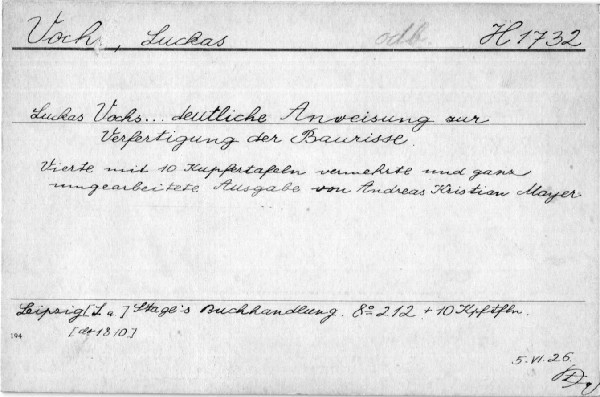 Voch, Luckas odb. H 1732
Luckas Vochs... deutliche Anweisung zur
Verfertigung der Baurisse.
Vierte mit 10 Kupfertafeln vermehrte und ganz
umgearbeitete Ausgabe von Andreas Kristian Mayer
Leipzig [S. a.] Stage's Buchhandlung. 8º 212 + 10 Kpftfln.
194 [dt 1810]
5. VI. 26.